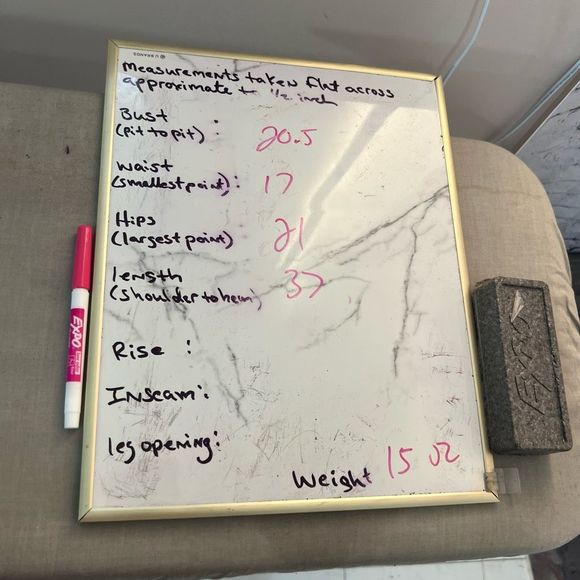 U BRANDS
measurements taken flat across
approximate + 1/2 inch
Bust
(pit to pit) : 20.5
waist
(smallest point) : 17
Hips
(largest point) 21
length
(shoulder to hem) 37
Rise :
Inseam :
leg opening :
Weight 15 oz
EXPO
EXPO